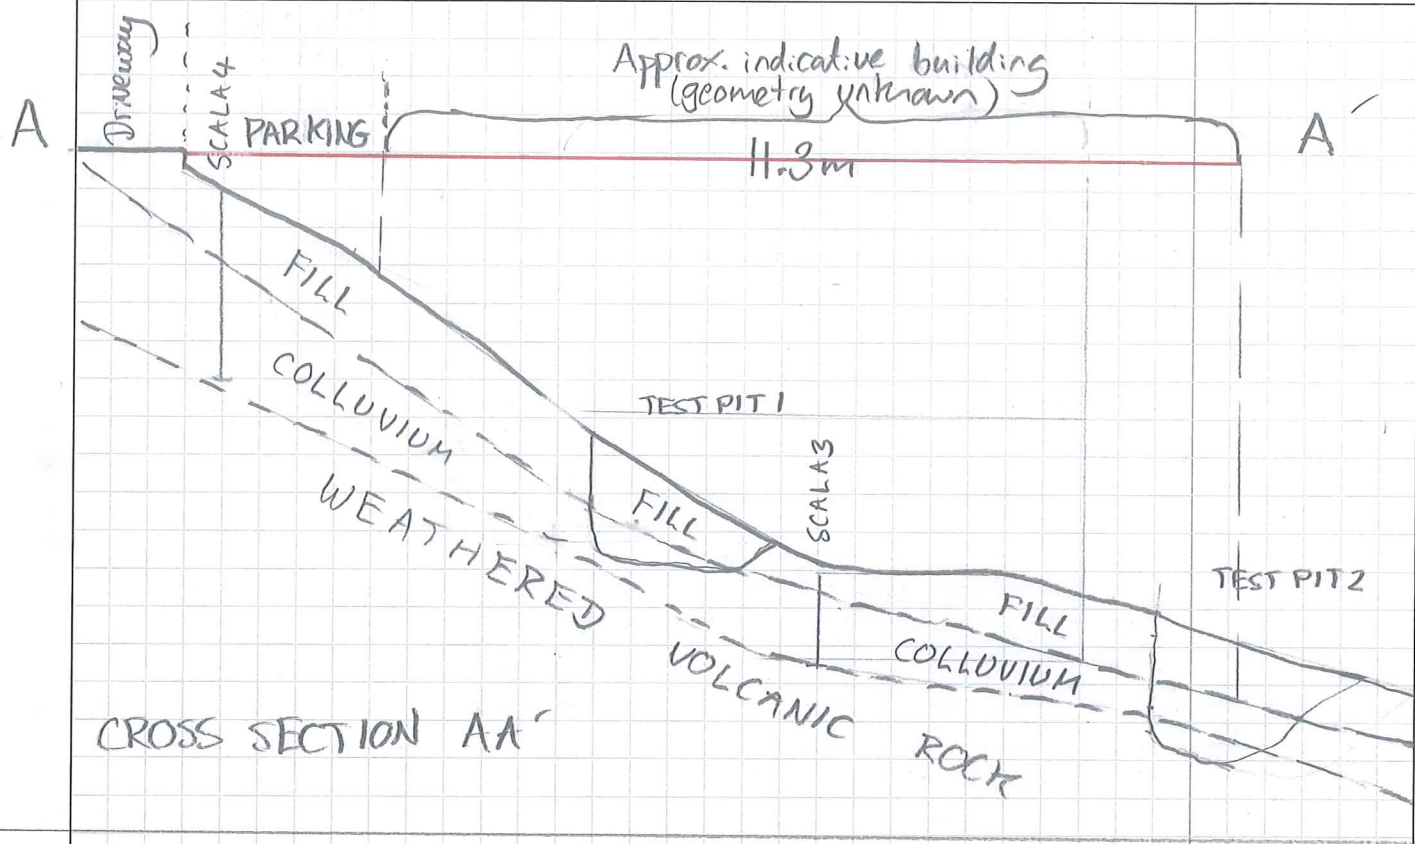 Driveway
SCALA4
PARKING
Approx. indicative building
(geometry unknown)
A
A´
11.3m
FILL
COLLUVIUM
WEATHERED VOLCANIC ROCK
TEST PIT 1
FILL
SCALA3
TEST PIT 2
FILL
COLLUVIUM
CROSS SECTION AA´